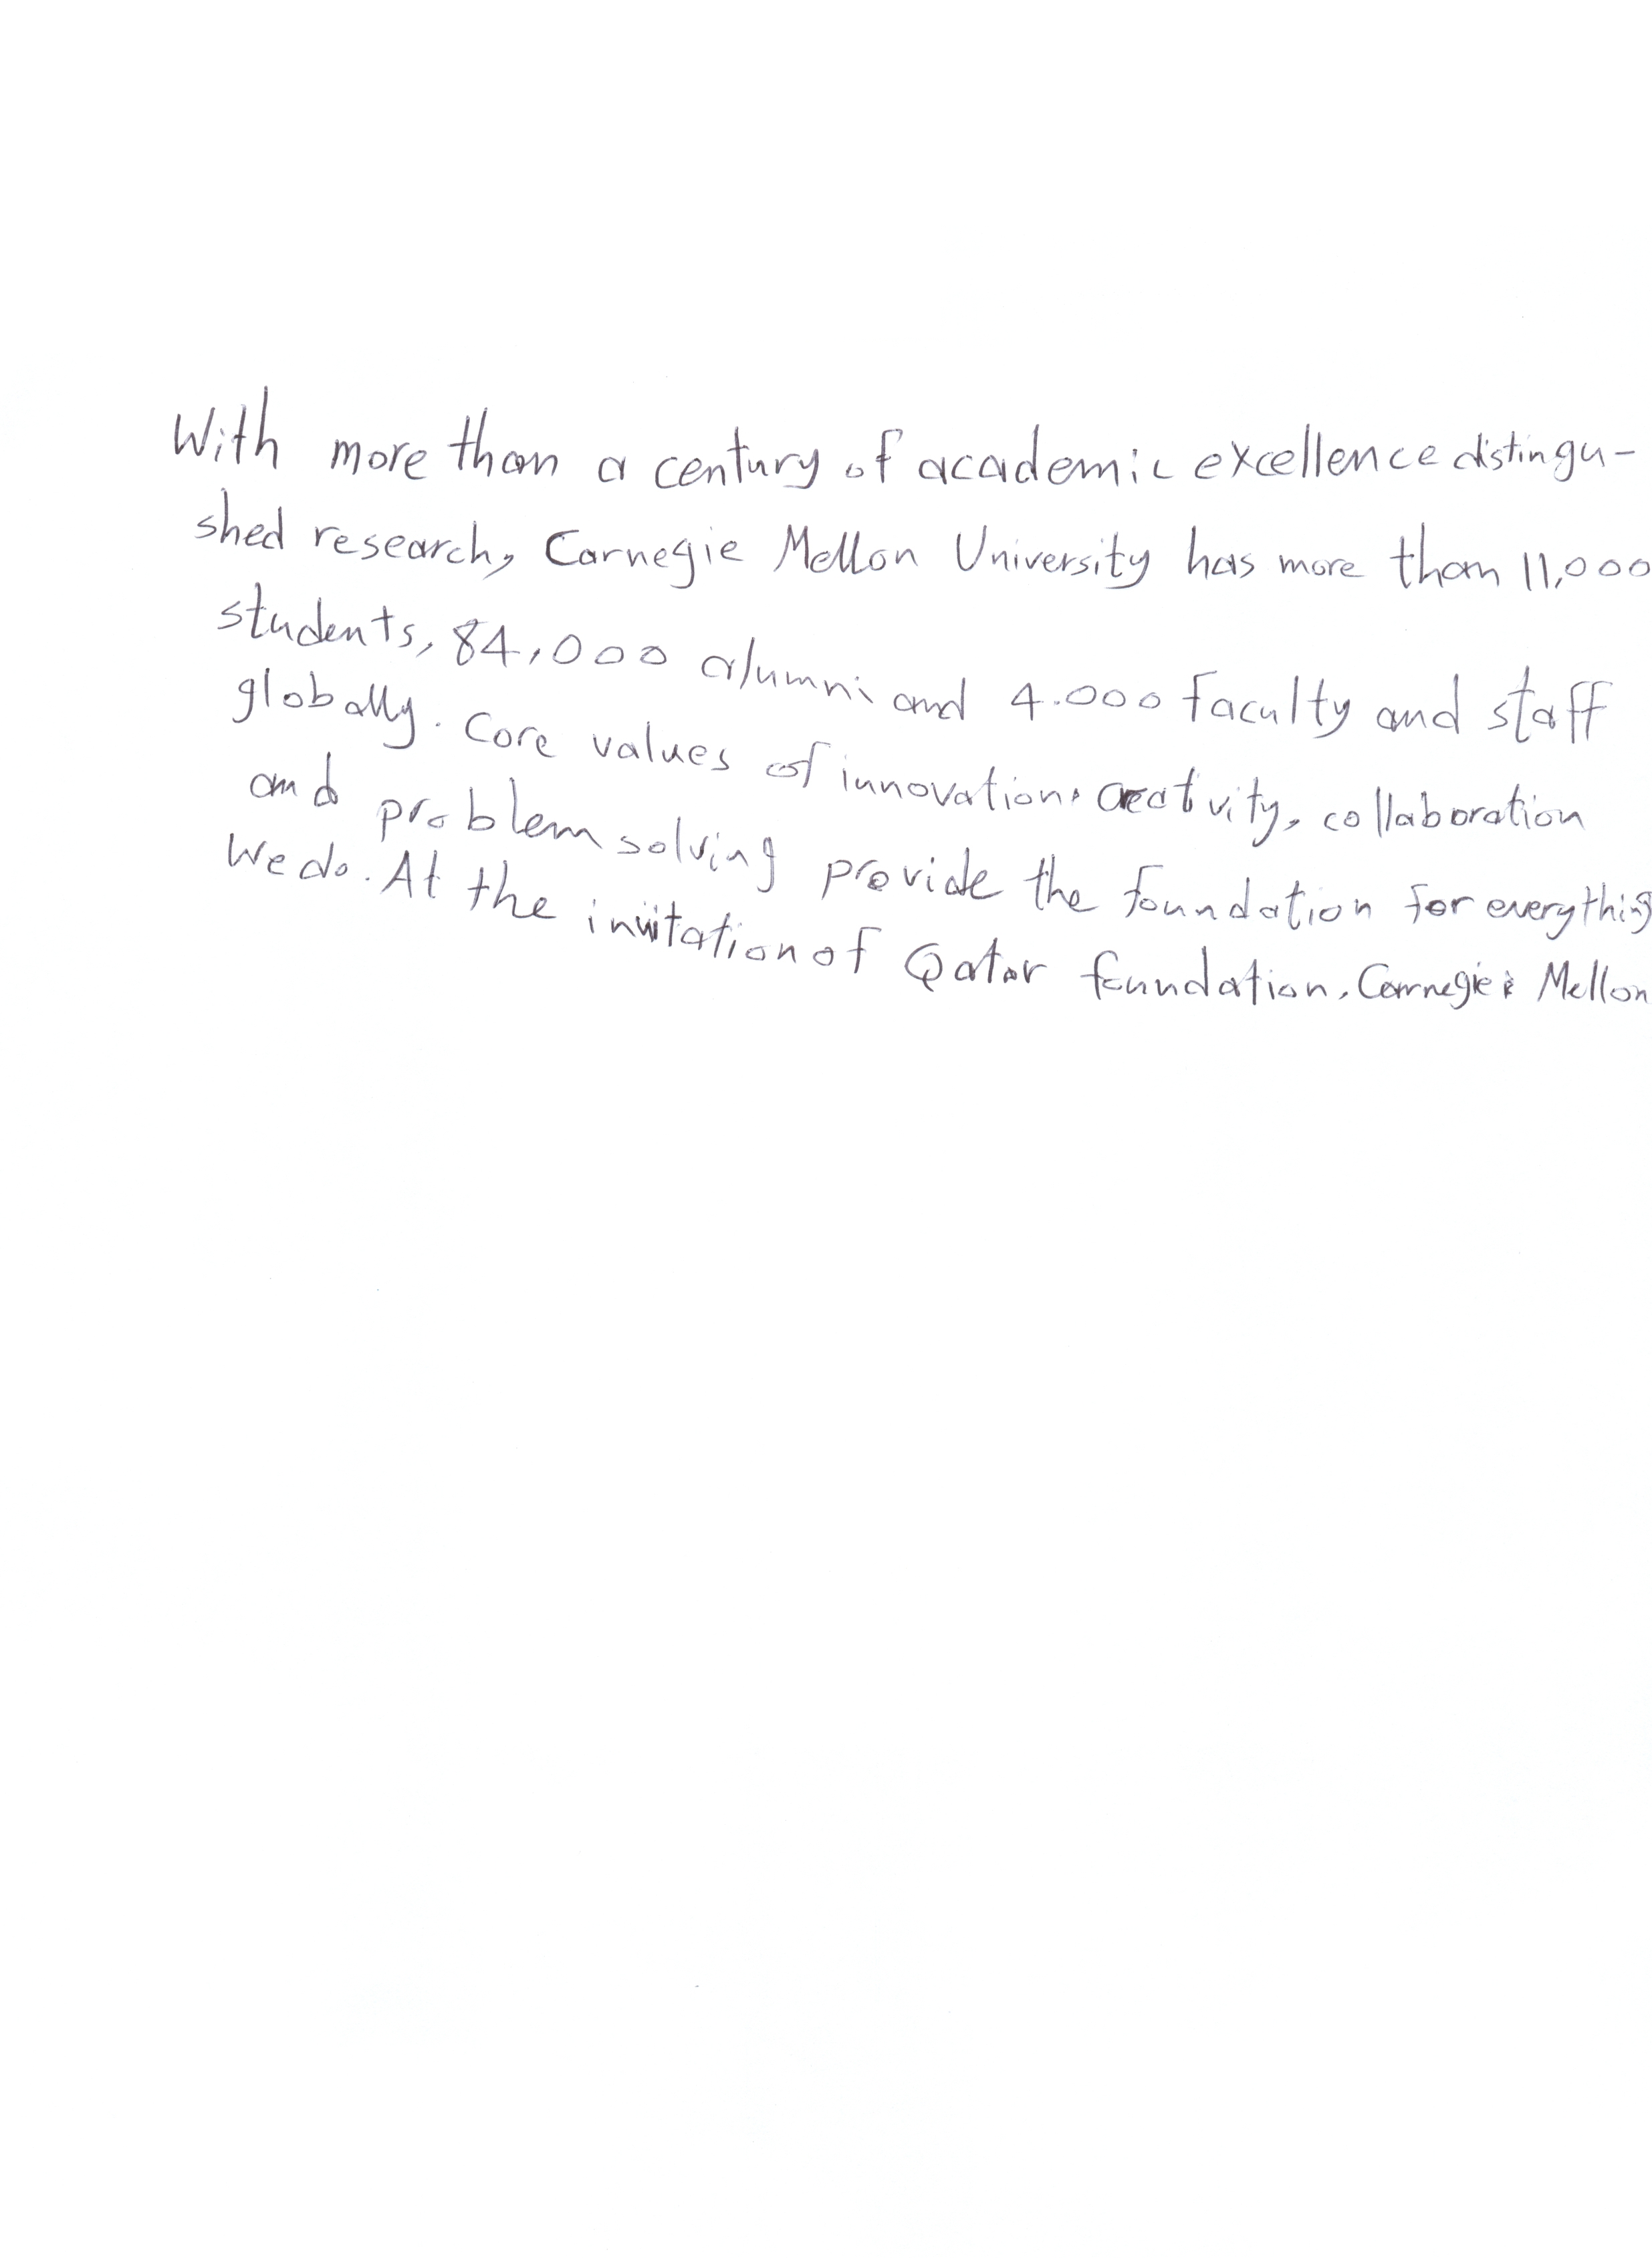 With more than a century of academic excellence distingu-
shed research, Carnegie Mellon University has more than 11,000
students, 84,000 alumni and 4.000 faculty and staff
globally. Core values of innovation, creatvity, collaboration
and problem solving provide the foundation for everything
We do. At the invitation of Qatar foundation, Carnegie Mellon